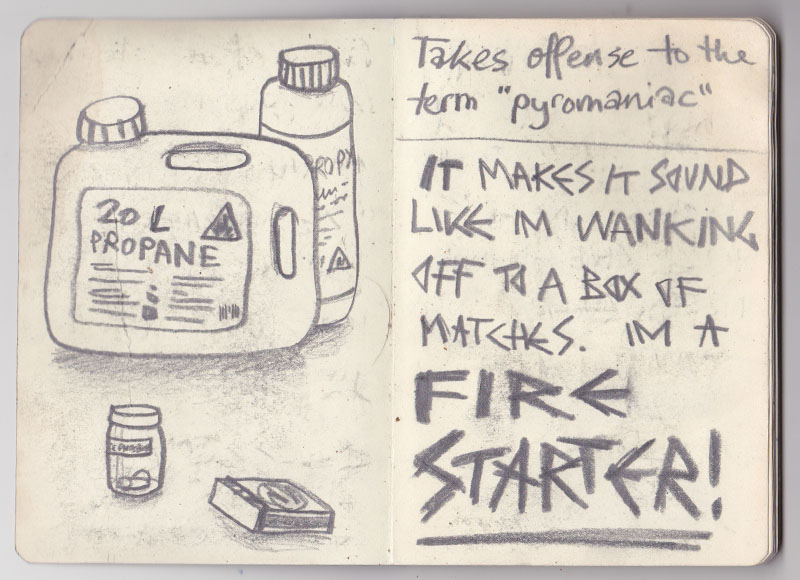 20 L
PROPANE
PROPA
Takes offense to the
term "pyromaniac"
IT MAKES IT SOUND
LIKE IM WANKING
OFF TO A BOX OF
MATCHES. IM A
FIRE
STARTER!